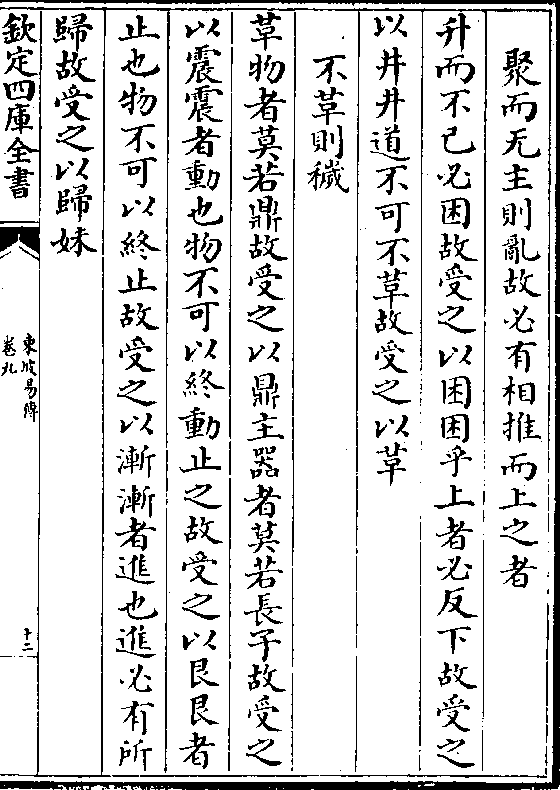 聚而无主則亂故必有相推而上之者
升而不已必困故受之以困困乎上者必反下故受之
以井井道不可不革故受之以革
不革則穢
革物者莫若鼎故受之以鼎主器者莫若長子故受之
以震震者動也物不可以終動止之故受之以艮艮者
止也物不可以終止故受之以漸漸者進也進必有所
歸故受之以歸妹
欽定四庫全書
東坡易傳
卷九
十二